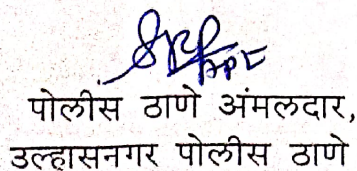 पोलीस ठाणे अंमलदार,
उल्हासनगर पोलीस ठाणे